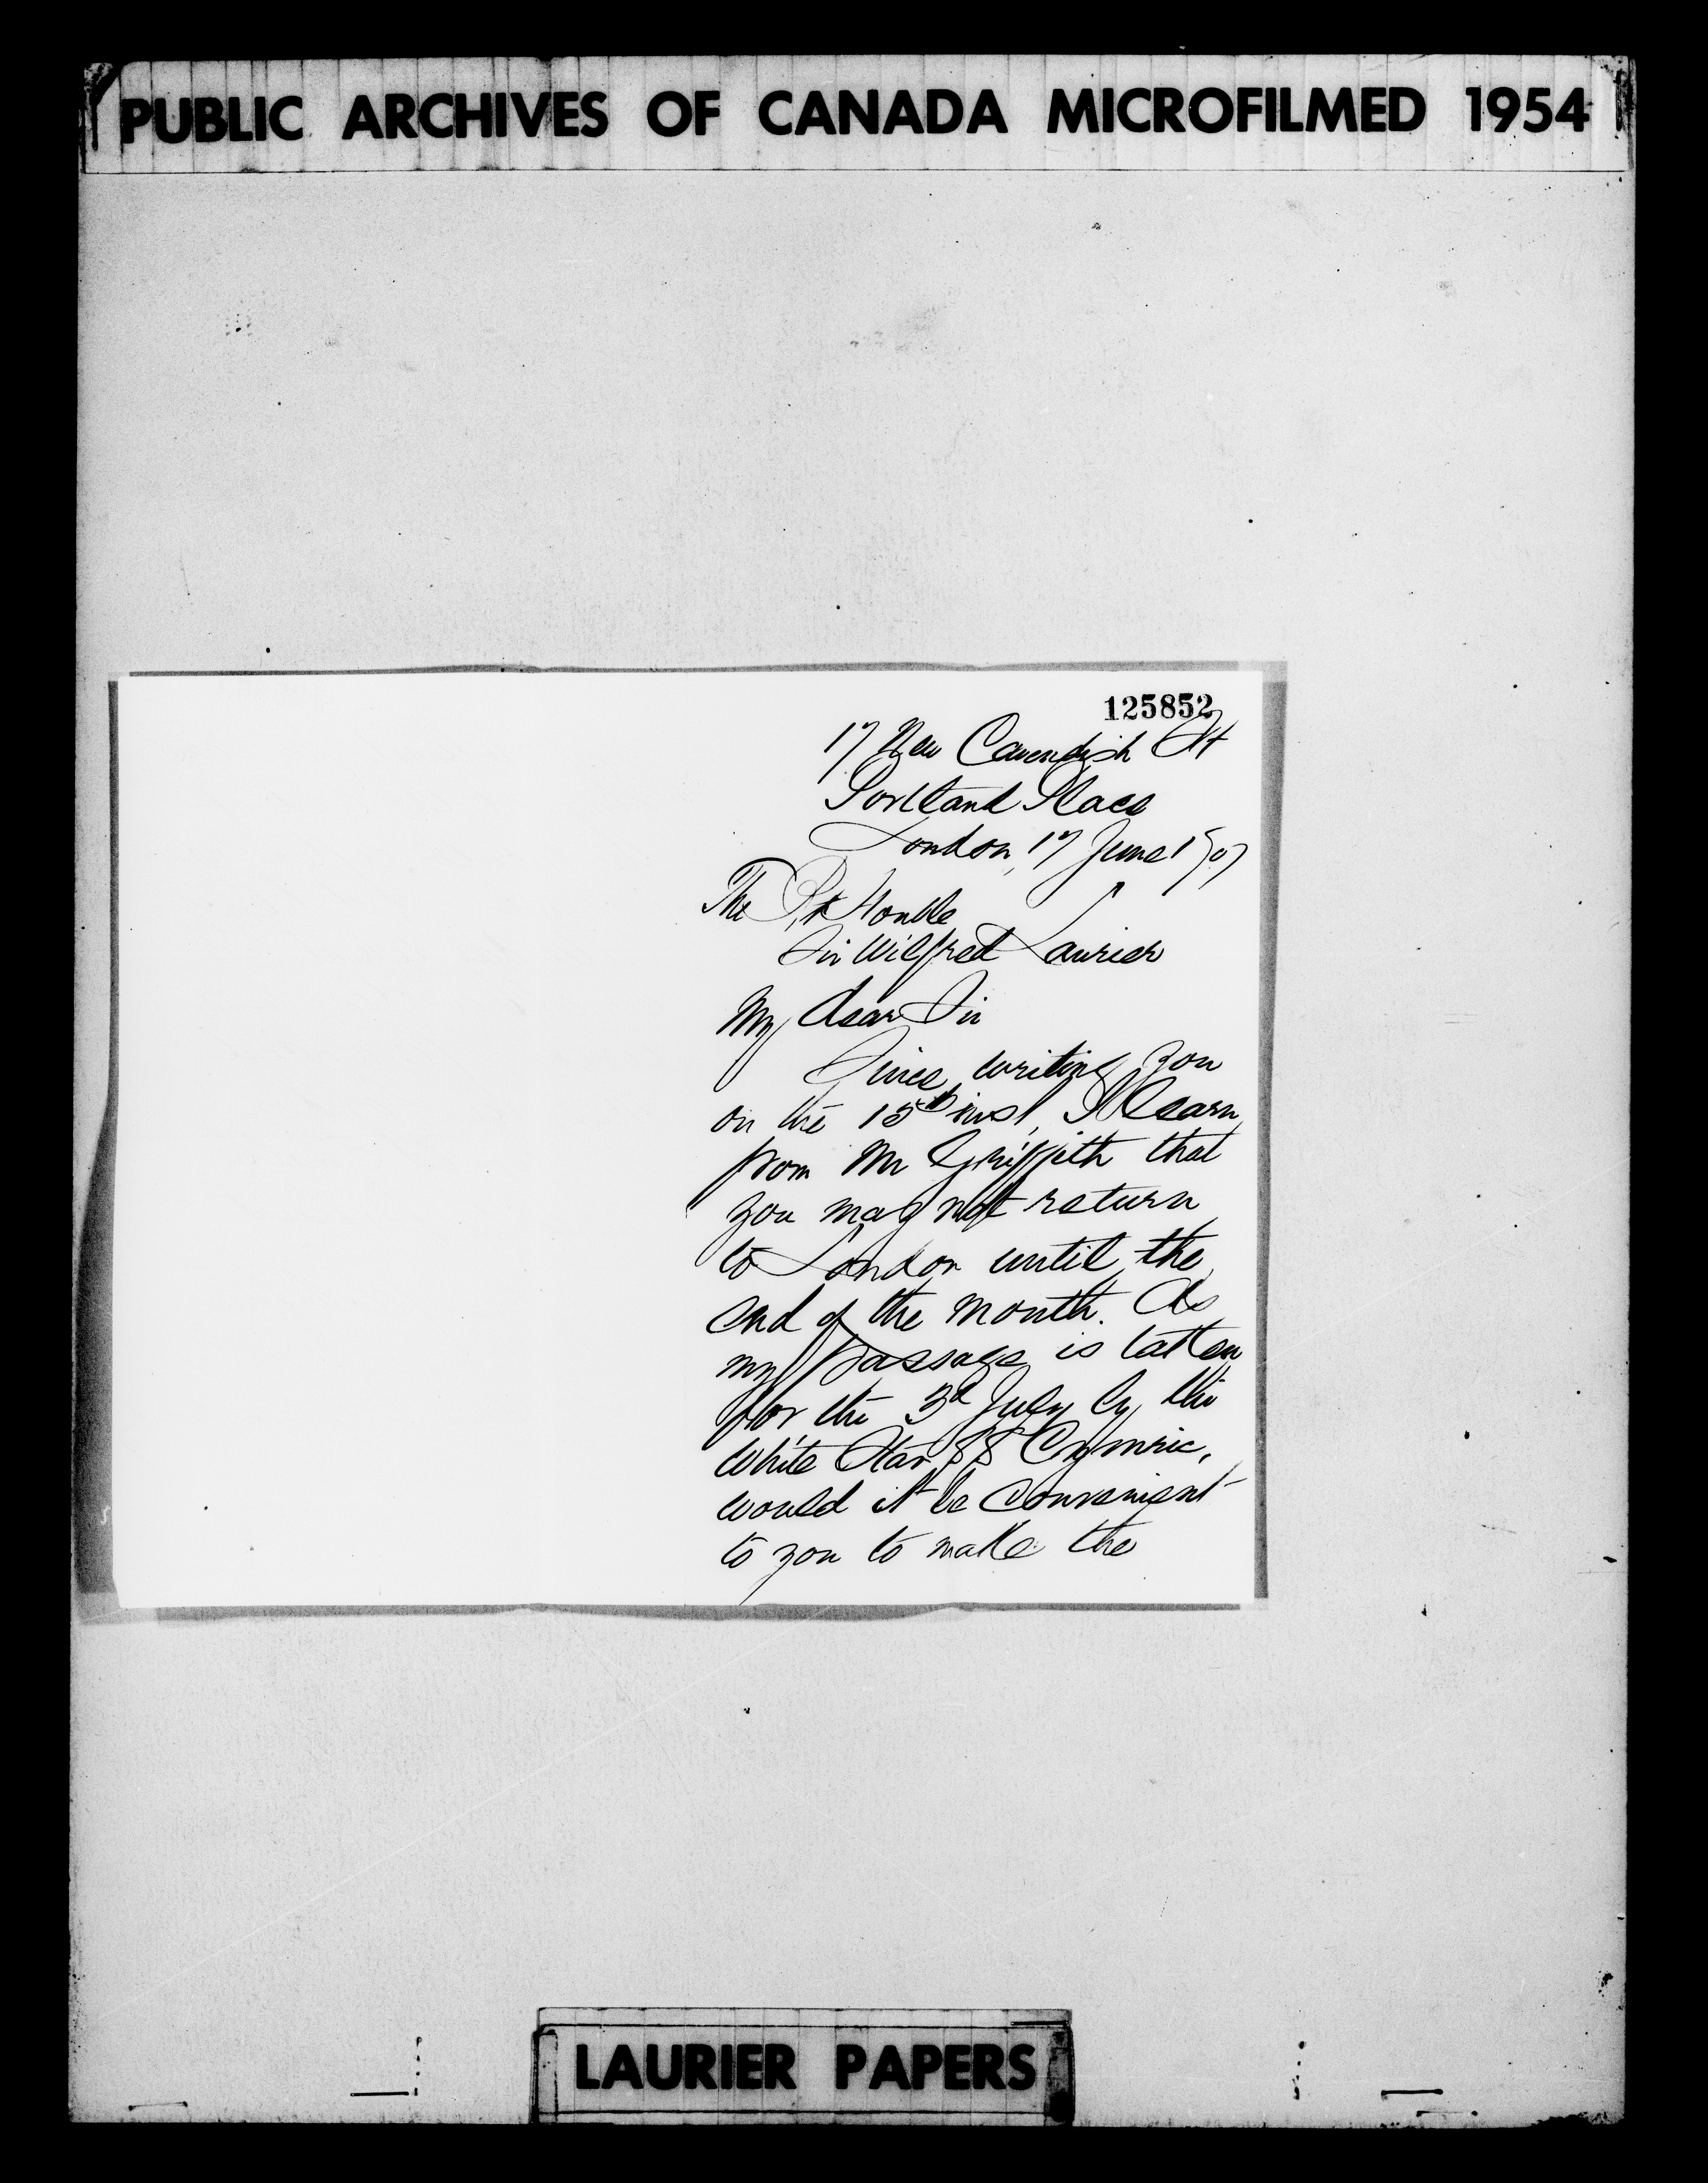 PUBLIC ARCHIVES OF CANADA MICROFILMED 1954
125852
17 New Cavendish St
Portland Place
London, 17 June 1907
The Rt Honble
Sir Wilfred Laurier
My dear Sir
Since writing you
on the 15th inst, I learn
from Mr Griffith that
you may not return
to London until the
end of the month. As
my passage is taken
for the 3d July by the
White Star SS Cymric,
would it be convenient
to you to make the
LAURIER PAPERS